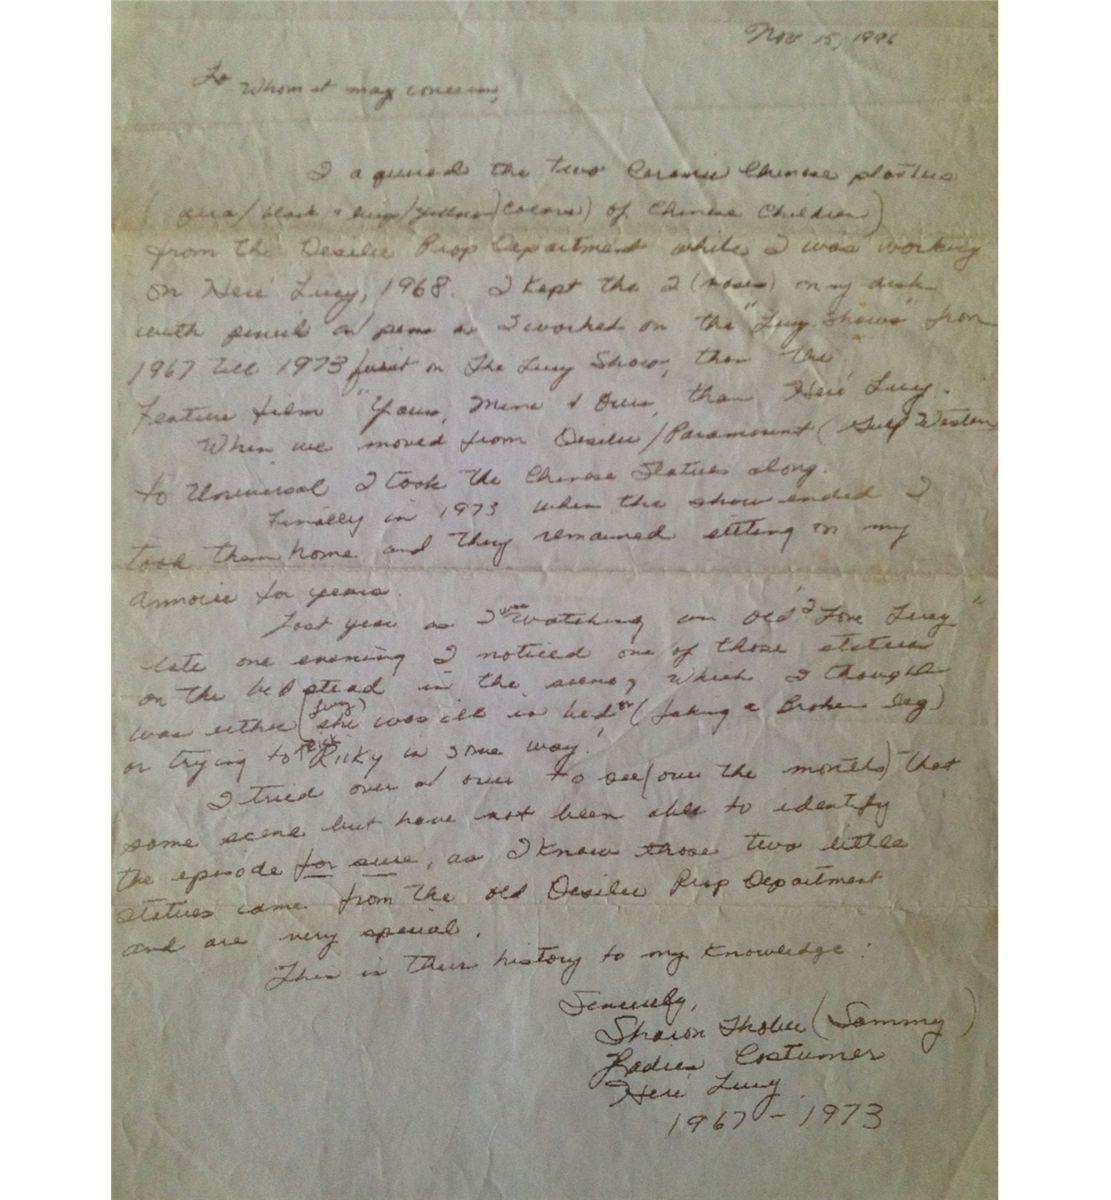 Nov. 15, 1996
To Whom it may concern,
I aquired the two Ceramic Chinese
black colors) of Chinese Children)
from the Desilu Prop Department while I was working
on Here' Lucy, 1968. I kept the 2 (vases) on my desk
with pencil or pens as I worked on the "Lucy Shows" from
1967 till 1973 first on The Lucy Show, then the
Feature film "Yours, Mine & Ours, then Here' Lucy.
When we moved from Desilu/Paramount (Gulf Western
to Universal I took the Chinese Statues along.
Finally in 1973 when the show ended I
took them home and they remained sitting on my
Armoire for years.
Last year as I was watching an old "I Love Lucy"
late one evening I noticed one of those statues
on the bedstead in the scene, which I thought
was either (Lucy) she was ill in bed or (faking a Broken leg)
or trying to trick Ricky in some way!
I tried over & over to see (over the months) that
same scene but have not been able to identify
the episode for sure, as I know those two little
statues came from the old Desilu Prop Department
and are very special.
This is their history to my Knowledge.
Sincerely,
Sharon (Sammy)
Ladies Costumer
Here' Lucy
1967 - 1973